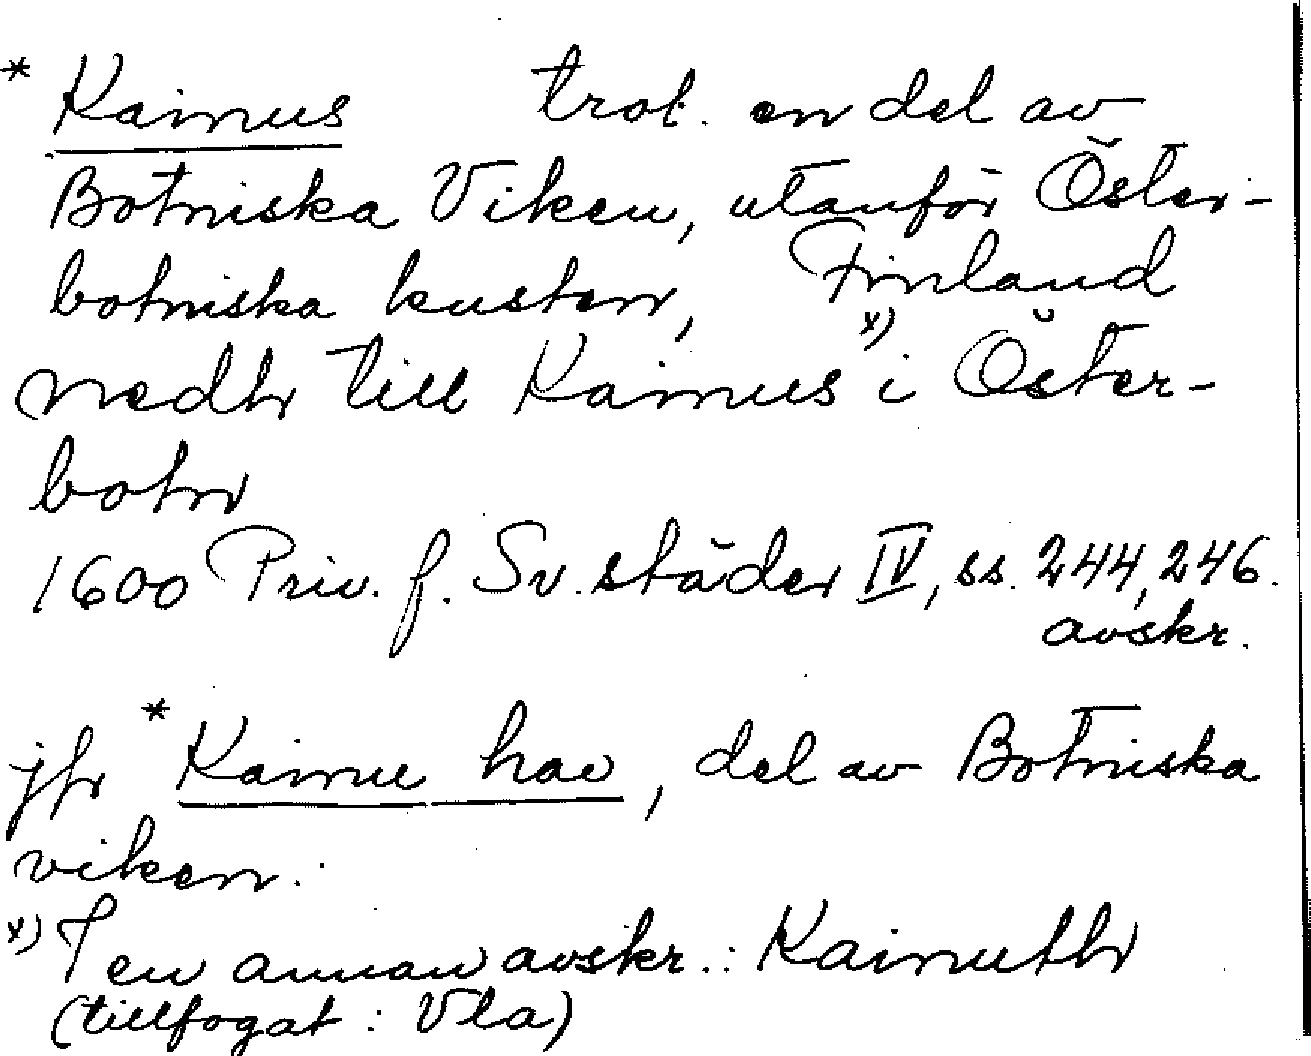 * Kaimus trol. en del av
Botniska Viken, utanför Öster-
botniska kusten, Finland
nedhr till Kaimus x) i Öster-
botn
1600 Priv. f. Sv. städer IV, ss. 244, 246.
avskr.
jfr * Kaimu hav, del av Botniska
viken.
x) I en annan avskr.: Kaimuthr
(tillfogat: Vla)